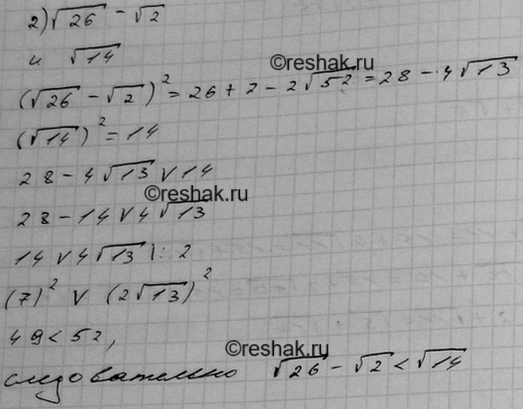 2) √26 - √2
и √14
©reshak.ru
(√26 - √2)² = 26 + 2 - 2√52 = 28 - 4√13
(√14)² = 14
28 - 4√13 V 14
©reshak.ru
28 - 14 V 4√13
14 V 4√13 |: 2
(7)² V (2√13)²
49 < 52,
©reshak.ru
следовательно √26 - √2 < √14